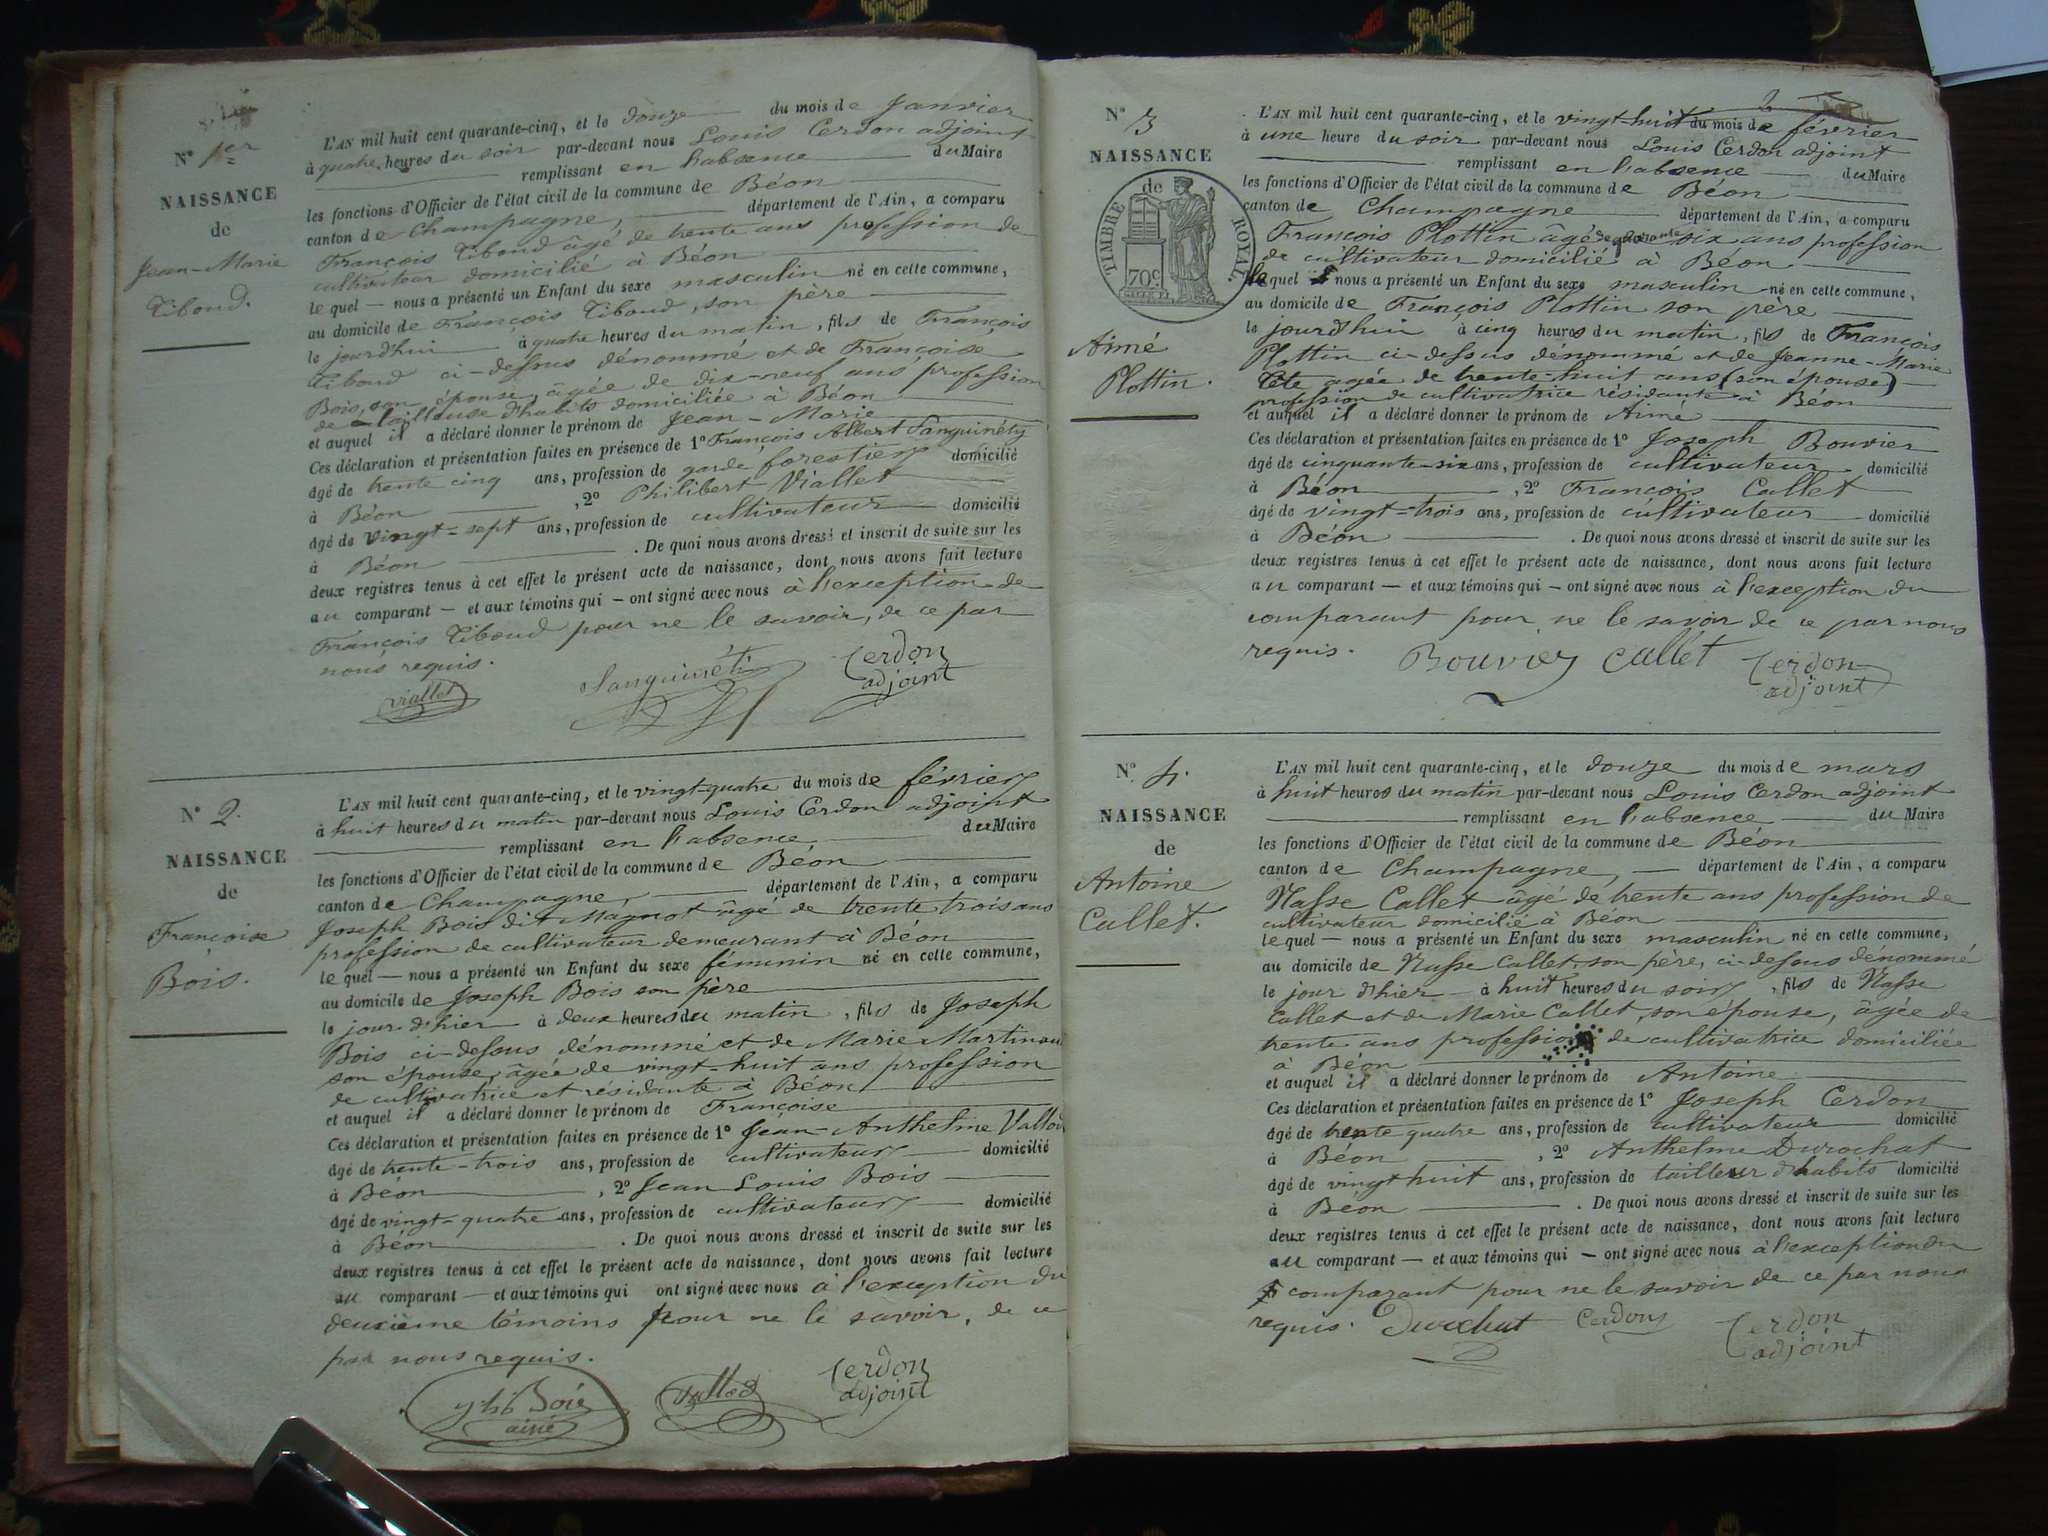 N° 1er
NAISSANCE
de
Jean-Marie
Tiboud.
L'AN mil huit cent quarante-cinq, et le douze du mois de Janvier
à quatre heures du soir par-devant nous Louis Cerdon adjoint
remplissant en l'absence du Maire
les fonctions d'Officier de l'état civil de la commune de Béon
canton de Champagne, département de l'Ain, a comparu
François Tiboud âgé de trente ans profession de
cultivateur domicilié à Béon
le quel — nous a présenté un Enfant du sexe masculin né en cette commune,
au domicile de François Tiboud, son père
le jourd'hui à quatre heures du matin, fils de François
Tiboud ci-dessus dénommé et de Françoise
Bois, son épouse, âgée de dix-neuf ans profession
de tailleuse d'habits domiciliée à Béon
et auquel il a déclaré donner le prénom de Jean-Marie
Ces déclaration et présentation faites en présence de 1° François Albert Sanguinéty
âgé de trente cinq ans, profession de garde forestier domicilié
à Béon , 2° Philibert Viallet
âgé de vingt-sept ans, profession de cultivateur domicilié
à Béon . De quoi nous avons dressé et inscrit de suite sur les
deux registres tenus à cet effet le présent acte de naissance, dont nous avons fait lecture
au comparant — et aux témoins qui — ont signé avec nous à l'exception de
François Tiboud pour ne le savoir, de ce par
nous requis.
Viallet Sanguinéti Cerdon
adjoint
N° 2.
NAISSANCE
de
Françoise
Bois.
L'AN mil huit cent quarante-cinq, et le vingt-quatre du mois de février
à huit heures du matin par-devant nous Louis Cerdon adjoint
remplissant en l'absence du Maire
les fonctions d'Officier de l'état civil de la commune de Béon
canton de Champagne, département de l'Ain, a comparu
Joseph Bois dit Magnot âgé de trente trois ans
profession de cultivateur demeurant à Béon
le quel — nous a présenté un Enfant du sexe féminin né en cette commune,
au domicile de Joseph Bois son père
le jour d'hier à deux heures du matin, fils de Joseph
Bois ci-dessus dénommé et de Marie Martinau
son épouse, âgée de vingt-huit ans profession
de cultivatrice et résidante à Béon
et auquel il a déclaré donner le prénom de Françoise
Ces déclaration et présentation faites en présence de 1° Jean-Anthelme
âgé de trente-trois ans, profession de cultivateur domicilié
à Béon , 2° Jean Louis Bois
âgé de vingt-quatre ans, profession de cultivateur domicilié
à Béon . De quoi nous avons dressé et inscrit de suite sur les
deux registres tenus à cet effet le présent acte de naissance, dont nous avons fait lecture
au comparant — et aux témoins qui ont signé avec nous à l'exception du
deuxième témoins pour ne le savoir, de ce
par nous requis.
Bois Cerdon
ainé adjoint
2
N° 3
NAISSANCE
de
TIMBRE ROYAL
70c
Aimé
Plottin.
L'AN mil huit cent quarante-cinq, et le vingt-huit du mois de février
à une heure du soir par-devant nous Louis Cerdon adjoint
remplissant en l'absence du Maire
les fonctions d'Officier de l'état civil de la commune de Béon
canton de Champagne département de l'Ain, a comparu
François Plottin âgé de quarante six ans profession
de cultivateur domicilié à Béon
le quel nous a présenté un Enfant du sexe masculin né en cette commune,
au domicile de François Plottin son père
le jourd'hui à cinq heures du matin, fils de François
Plottin ci-dessus dénommé et de Jeanne-Marie
âgée de trente-huit ans (son épouse)
profession de cultivatrice résidante à Béon
et auquel il a déclaré donner le prénom de Aimé
Ces déclaration et présentation faites en présence de 1° Joseph Bouvier
âgé de cinquante-six ans, profession de cultivateur domicilié
à Béon , 2° François Callet
âgé de vingt-trois ans, profession de cultivateur domicilié
à Béon . De quoi nous avons dressé et inscrit de suite sur les
deux registres tenus à cet effet le présent acte de naissance, dont nous avons fait lecture
au comparant — et aux témoins qui — ont signé avec nous à l'exception du
comparant pour ne le savoir de ce par nous
requis. Bouvier Callet Cerdon
adjoint
N° 4.
NAISSANCE
de
Antoine
Callet.
L'AN mil huit cent quarante-cinq, et le douze du mois de mars
à huit heures du matin par-devant nous Louis Cerdon adjoint
remplissant en l'absence du Maire
les fonctions d'Officier de l'état civil de la commune de Béon
canton de Champagne, — département de l'Ain, a comparu
Callet âgé de trente ans profession de
cultivateur domicilié à Béon
le quel — nous a présenté un Enfant du sexe masculin né en cette commune,
au domicile de Callet, son père, ci-dessus dénommé
le jour d'hier à huit heures du soir, fils de
Callet et de Marie Callet, son épouse, âgée de
trente ans profession de cultivatrice domiciliée
à Béon
et auquel il a déclaré donner le prénom de Antoine
Ces déclaration et présentation faites en présence de 1° Joseph Cerdon
âgé de trente quatre ans, profession de cultivateur domicilié
à Béon , 2° Anthelme Durochat
âgé de vingt huit ans, profession de tailleur d'habits domicilié
à Béon . De quoi nous avons dressé et inscrit de suite sur les
deux registres tenus à cet effet le présent acte de naissance, dont nous avons fait lecture
au comparant — et aux témoins qui — ont signé avec nous à l'exception du
comparant pour ne le savoir de ce par nous
requis. Durochat Cerdon Cerdon
adjoint